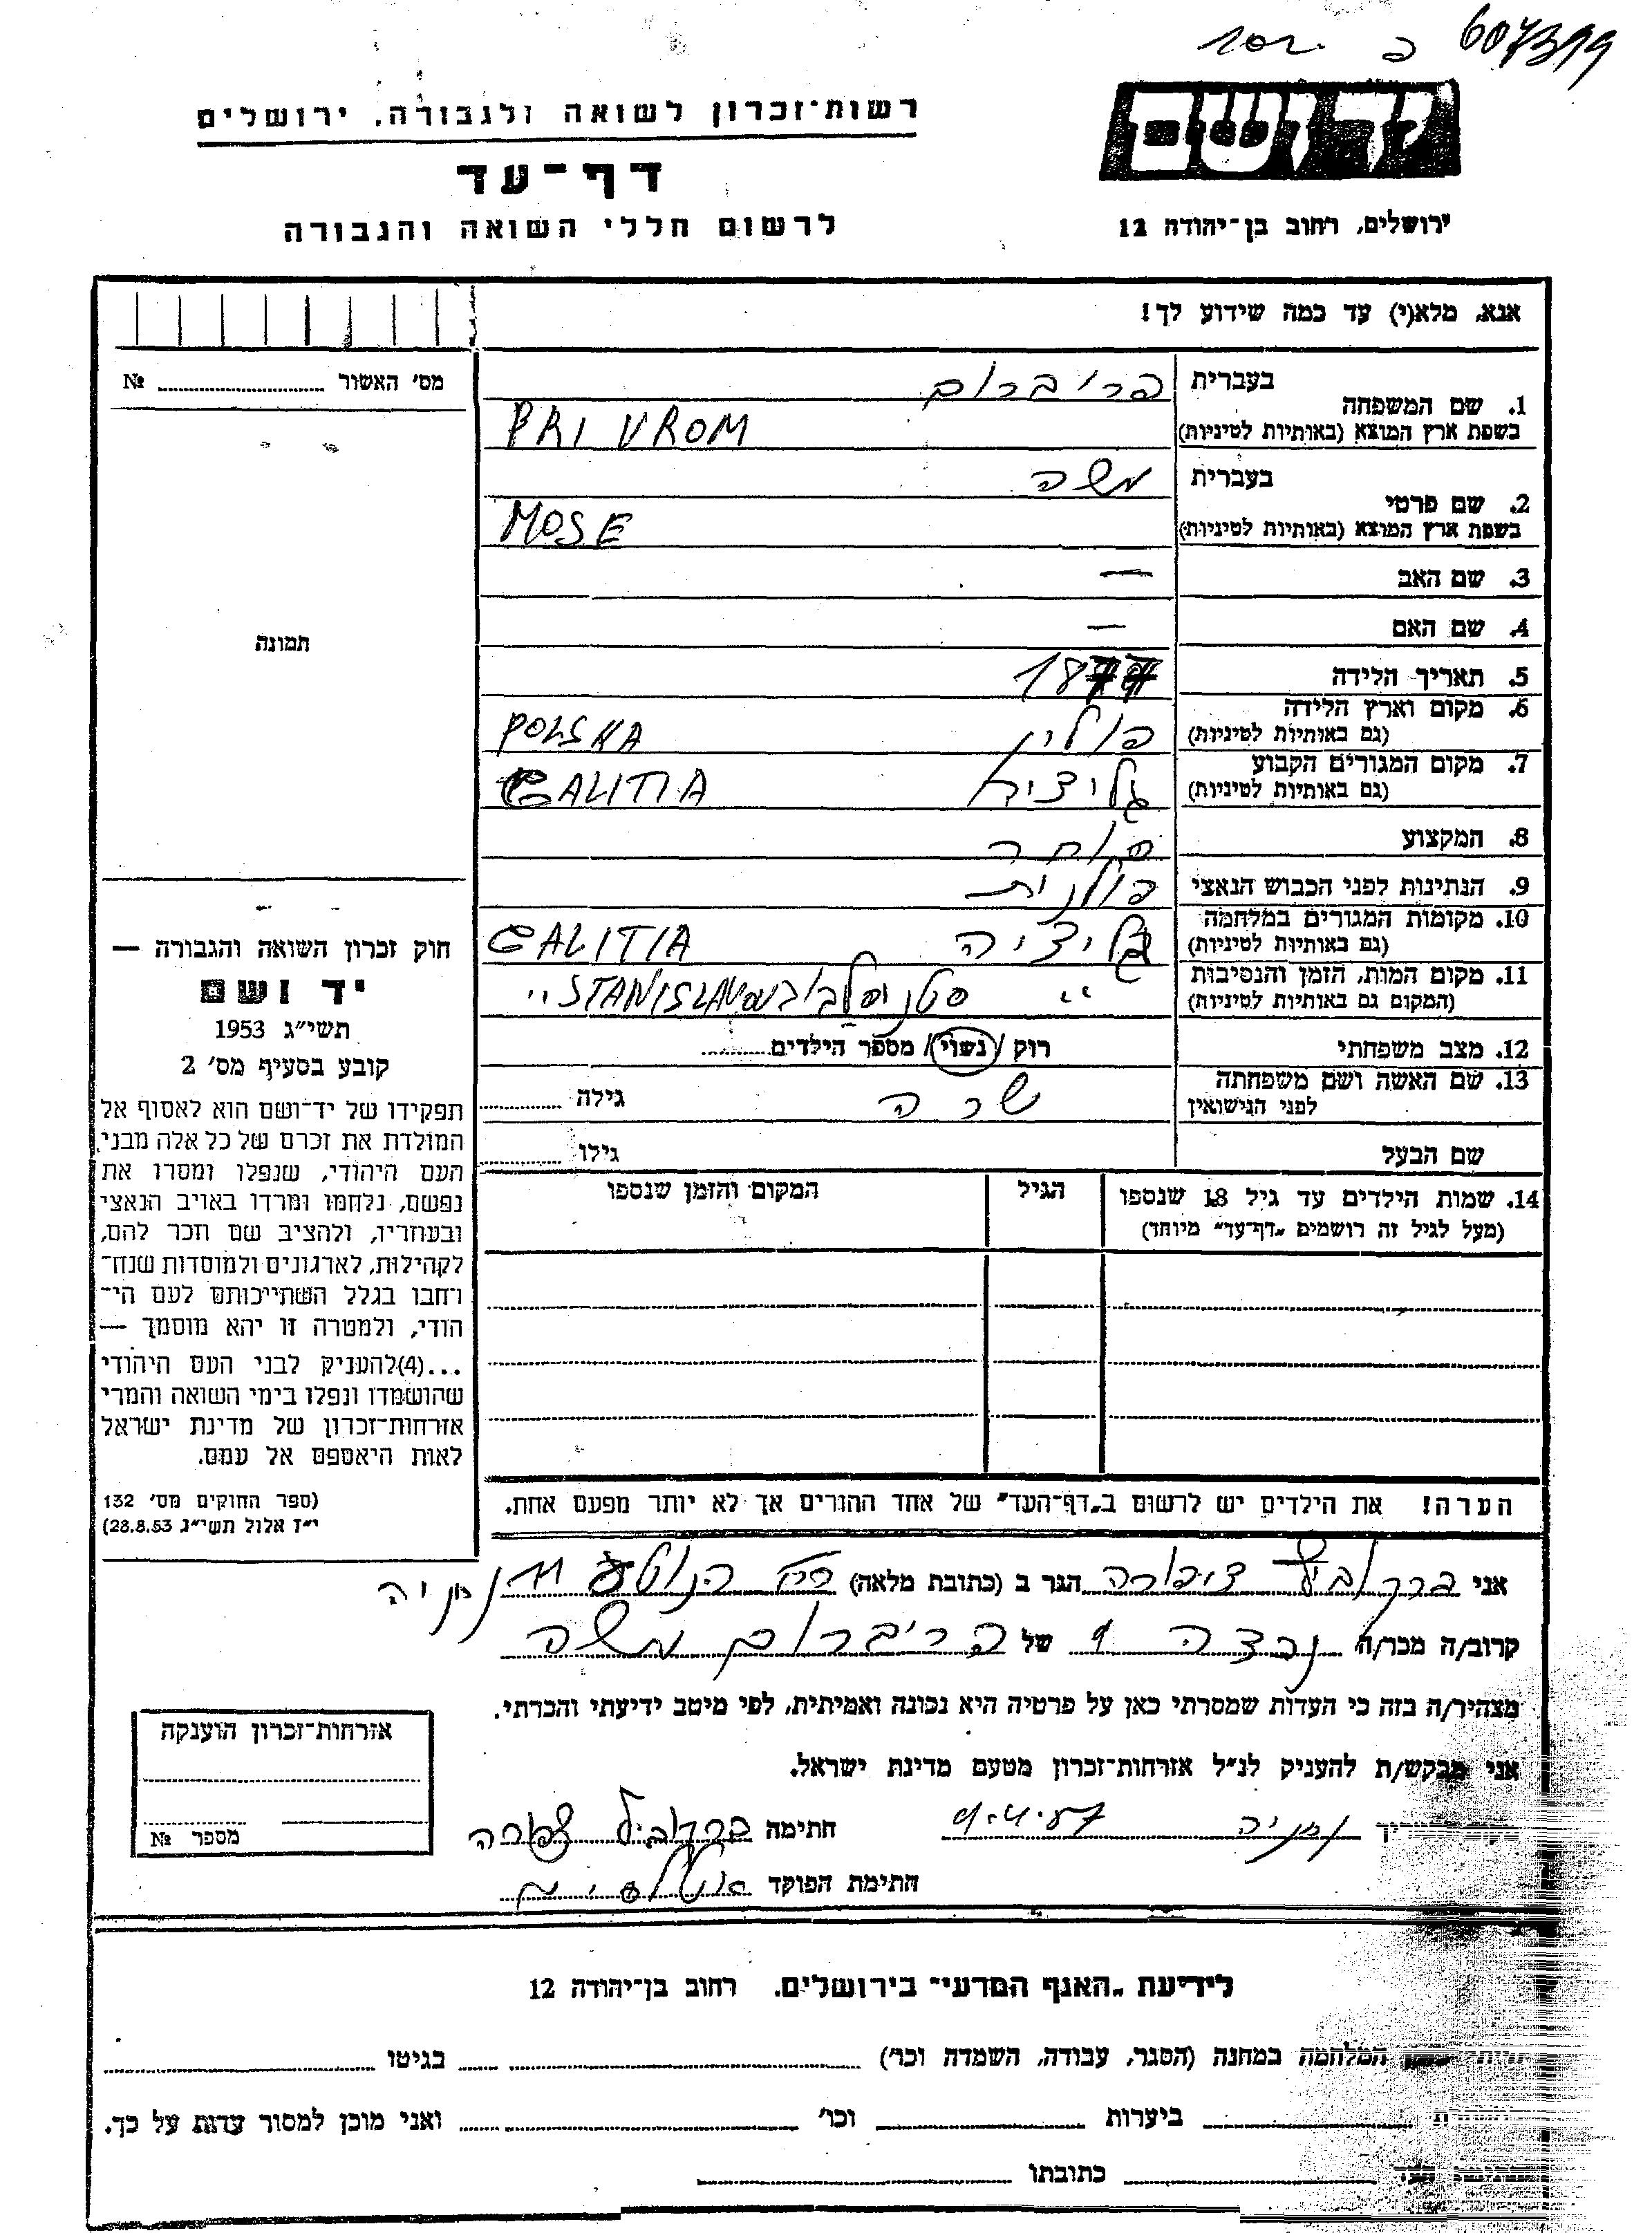 607399
רשות־זכרון לשואה ולגבורה, ירושלים
דף־עד
לרשום חללי השואה והגבורה
יד ושם
ירושלים, רחוב בן־יהודה 12
אנא, מלא(י) עד כמה שידוע לך!
מס׳ האשור № ....
תמונה
בעברית פריברום
1. שם המשפחה
בשפת ארץ המוצא (באותיות לטיניות) PRI VROM
בעברית משה
2. שם פרטי
בשפת ארץ המוצא (באותיות לטיניות) MOSE
3. שם האב —
4. שם האם —
5. תאריך הלידה
6. מקום וארץ הלידה פולין POLSKA
(גם באותיות לטיניות)
7. מקום המגורים הקבוע גליציה GALITIA
(גם באותיות לטיניות)
8. המקצוע סוחר
9. הנתינות לפני הכבוש הנאצי פולנית
10. מקומות המגורים במלחמה גליציה GALITIA
(גם באותיות לטיניות)
11. מקום המות, הזמן והנסיבות
(המקום גם באותיות לטיניות) STANISLAV
12. מצב משפחתי רוק / נשוי / מספר הילדים
13. שם האשה ושם משפחתה
לפני הנישואין שרה גילה
שם הבעל גילו
14. שמות הילדים עד גיל 18 שנספו הגיל המקום והזמן שנספו
(מעל לגיל זה רושמים „דף־עד״ מיוחד)
הערה! את הילדים יש לרשום ב„דף־העד״ של אחד ההורים אך לא יותר מפעם אחת.
חוק זכרון השואה והגבורה —
יד ושם
תשי״ג 1953
קובע בסעיף מס׳ 2
תפקידו של יד־ושם הוא לאסוף אל
המולדת את זכרם של כל אלה מבני
העם היהודי, שנפלו ומסרו את
נפשם, נלחמו ומרדו באויב הנאצי
ובעוזריו, ולהציב שם וזכר להם,
לקהילות, לארגונים ולמוסדות שנח־
רחבו בגלל השתייכותם לעם הי־
הודי, ולמטרה זו יהא מוסמך —
...(4)להעניק לבני העם היהודי
שהושמדו ונפלו בימי השואה והמרי
אזרחות־זכרון של מדינת ישראל
לאות היאספם אל עמם.
(ספר החוקים מס׳ 132
י״ז אלול תשי״ג 28.8.53)
אני ציפורה הגר ב (כתובת מלאה) נתניה
קרוב/ה מכר/ה של פריברום משה
מצהיר/ה בזה כי העדות שמסרתי כאן על פרטיה היא נכונה ואמיתית, לפי מיטב ידיעתי והכרתי.
אני מבקש/ת להעניק לנ״ל אזרחות־זכרון מטעם מדינת ישראל.
נתניה חתימה
חתימת הפוקד
אזרחות־זכרון הוענקה
מספר №
לידיעת „האגף המדעי״ בירושלים, רחוב בן־יהודה 12
המלחמה במחנה (הסגר, עבודה, השמדה וכו׳) בגיטו
ביערות וכו׳ ואני מוכן למסור עדות על כך.
כתובתו